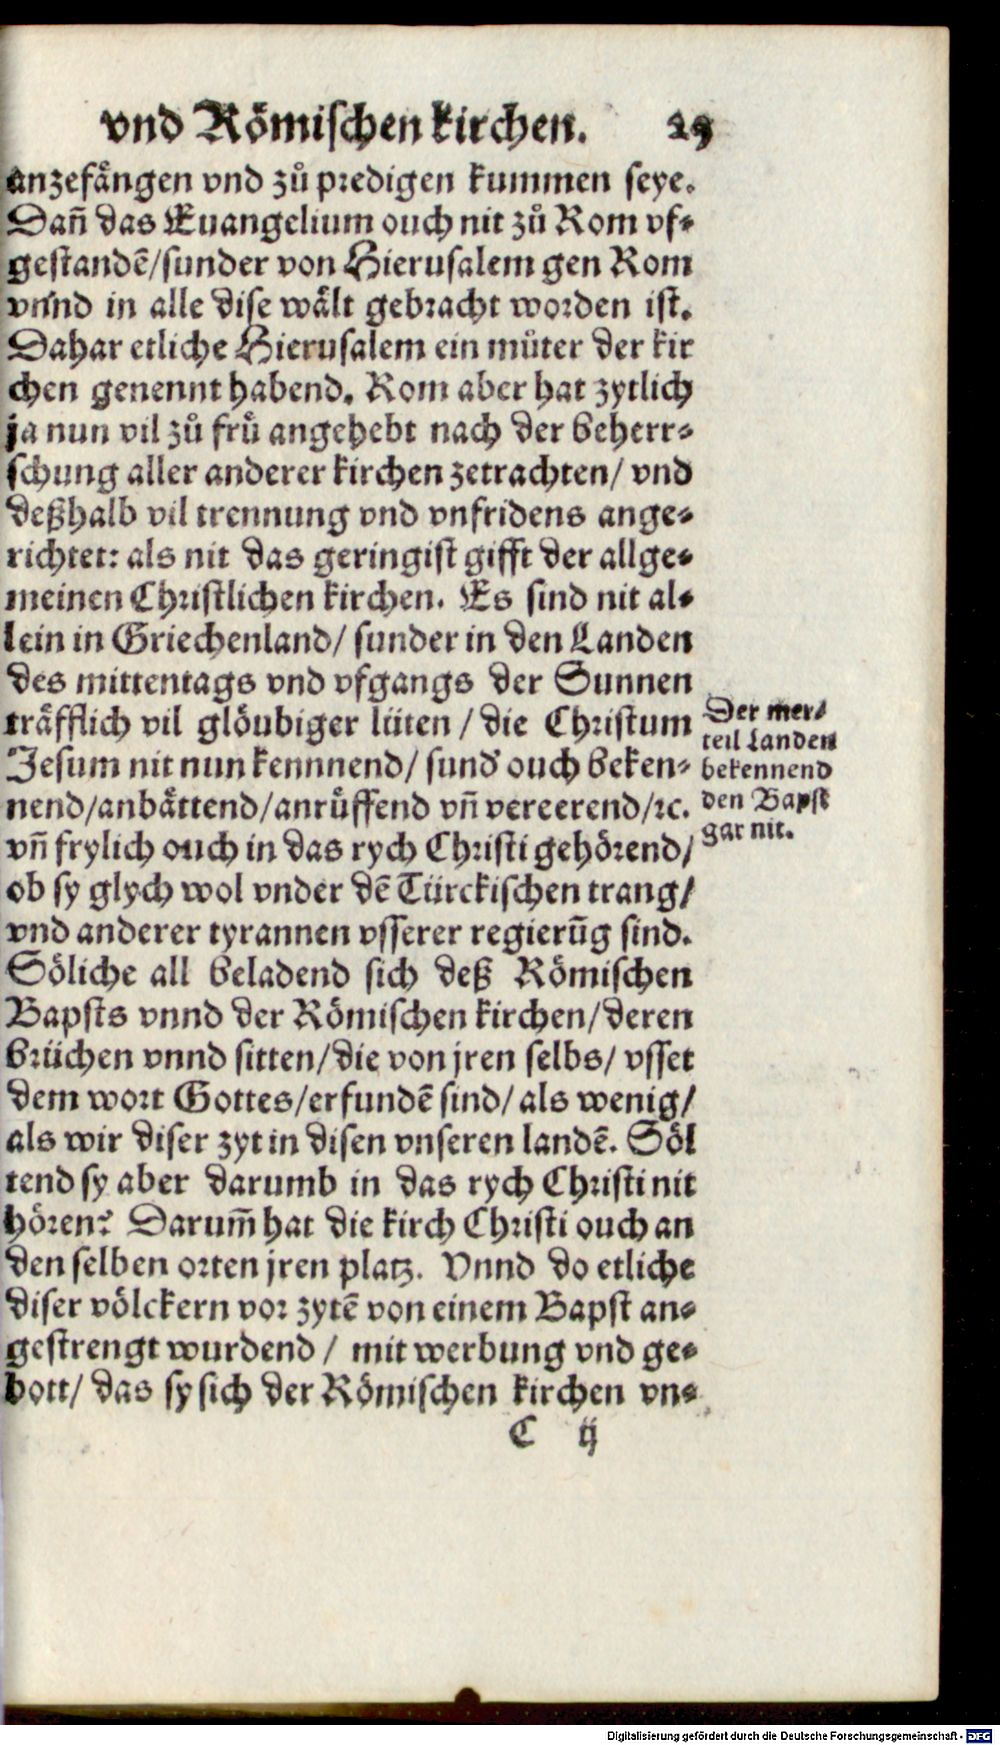 vnd Römischen kirchen. 29
anzefängen vnd zů predigen kummen seye.
Dañ das Euangelium ouch nit zů Rom vf⸗
gestandē/sunder von Hierusalem gen Rom
vnnd in alle dise wält gebracht worden ist.
Dahar etliche Hierusalem ein můter der kir
chen genennt habend. Rom aber hat zytlich
ja nun vil zů frü angehebt nach der beherr⸗
schung aller anderer kirchen zetrachten/ vnd
deßhalb vil trennung vnd vnfridens ange⸗
richtet: als nit das geringist gifft der allge⸗
meinen Christlichen kirchen. Es sind nit al⸗
lein in Griechenland/ sunder in den Landen
des mittentags vnd vfgangs der Sunnen
träfflich vil glöubiger lüten / die Christum
Jesum nit nun kennnend/ sund' ouch beken⸗
nend/anbättend/anrüffend vñ vereerend/ꝛc.
vñ frylich ouch in das rych Christi gehörend/
ob sy glych wol vnder dē Türckischen trang/
vnd anderer tyrannen vsserer regierūg sind.
Söliche all beladend sich deß Römischen
Bapsts vnnd der Römischen kirchen/deren
brüchen vnnd sitten/die von jren selbs/ vsset
dem wort Gottes/erfundē sind/ als wenig/
als wir diser zyt in disen vnseren landē. Söl
tend sy aber darumb in das rych Christi nit
hören? Darum̄ hat die kirch Christi ouch an
den selben orten jren platz. Vnnd do etliche
diser völckern vor zytē von einem Bapst an⸗
gestrengt wurdend / mit werbung vnd ge⸗
bott/ das sy sich der Römischen kirchen vn⸗
C ij
Der mer⸗
teil Landen
bekennend
den Bapst
gar nit.
Digitalisierung gefördert durch die Deutsche Forschungsgemeinschaft - DFG